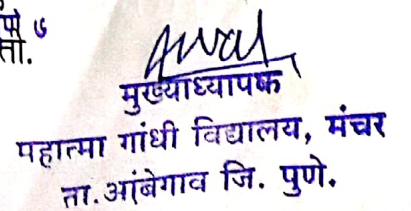 पो ७
ता.
मुख्याध्यापक
महात्मा गांधी विद्यालय, मंचर
ता.आंबेगाव जि. पुणे.